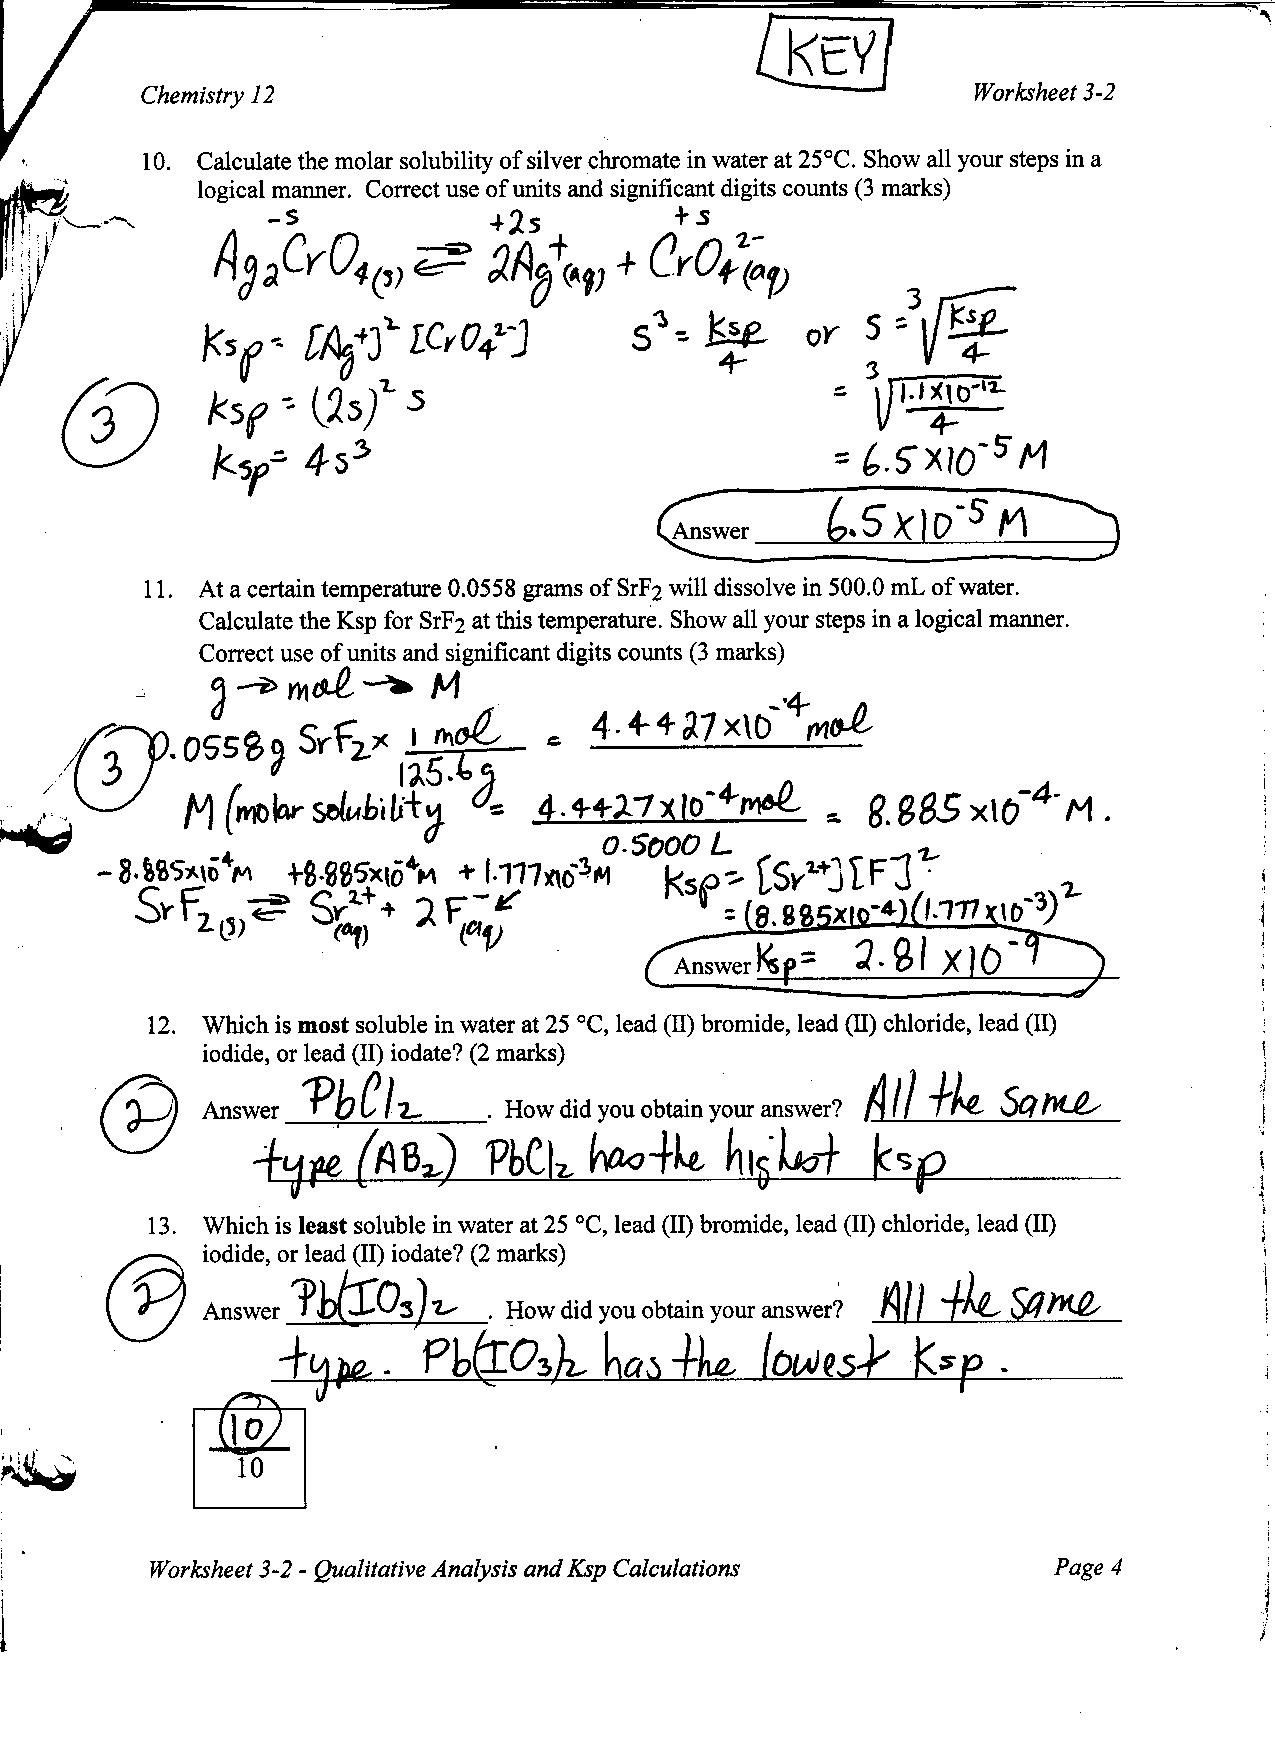 KEY
Chemistry 12 Worksheet 3-2
10. Calculate the molar solubility of silver chromate in water at 25°C. Show all your steps in a
logical manner. Correct use of units and significant digits counts (3 marks)
-s +2s +s
Ag₂CrO₄(s) ⇌ 2Ag⁺(aq) + CrO₄²⁻(aq)
Ksp = [Ag⁺]² [CrO₄²⁻] S³ = ksp/4 or S = ³√(ksp/4)
3
ksp = (2s)² s = ³√(1.1x10⁻¹²/4)
ksp = 4s³ = 6.5 x10⁻⁵ M
Answer 6.5 x10⁻⁵ M
11. At a certain temperature 0.0558 grams of SrF₂ will dissolve in 500.0 mL of water.
Calculate the Ksp for SrF₂ at this temperature. Show all your steps in a logical manner.
Correct use of units and significant digits counts (3 marks)
g → mol → M
3
0.0558g SrF₂ x 1 mol/125.6g = 4.4427x10⁻⁴ mol
M (molar solubility = 4.4427x10⁻⁴ mol/0.5000 L = 8.885 x10⁻⁴ M.
-8.885x10⁻⁴M +8.885x10⁻⁴M +1.777x10⁻³M Ksp = [Sr²⁺][F⁻]²
SrF₂(s) ⇌ Sr²⁺(aq) + 2F⁻(aq) = (8.885x10⁻⁴)(1.777x10⁻³)²
Answer Ksp = 2.81 x10⁻⁹
12. Which is most soluble in water at 25 °C, lead (II) bromide, lead (II) chloride, lead (II)
iodide, or lead (II) iodate? (2 marks)
2
Answer PbCl₂. How did you obtain your answer? All the same
type (AB₂) PbCl₂ has the highest ksp
13. Which is least soluble in water at 25 °C, lead (II) bromide, lead (II) chloride, lead (II)
iodide, or lead (II) iodate? (2 marks)
2
Answer Pb(IO₃)₂. How did you obtain your answer? All the same
type. Pb(IO₃)₂ has the lowest Ksp.
10
10
Worksheet 3-2 - Qualitative Analysis and Ksp Calculations Page 4